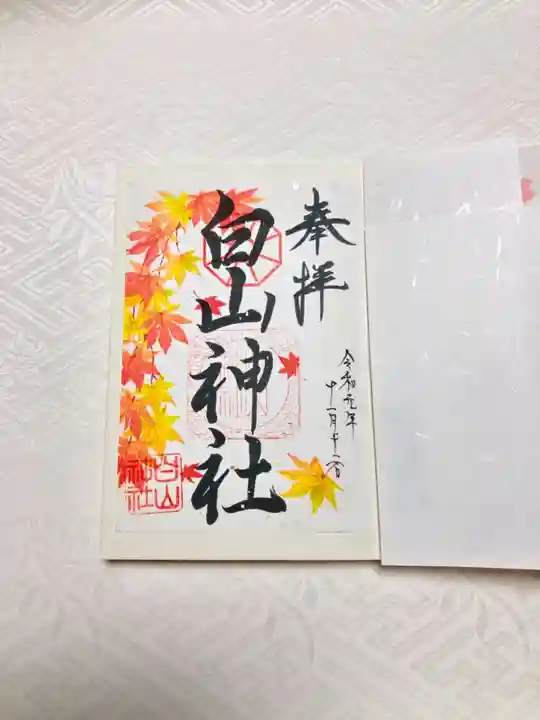 奉拝
令和元年
十一月十一日
白山神社
白山
神社